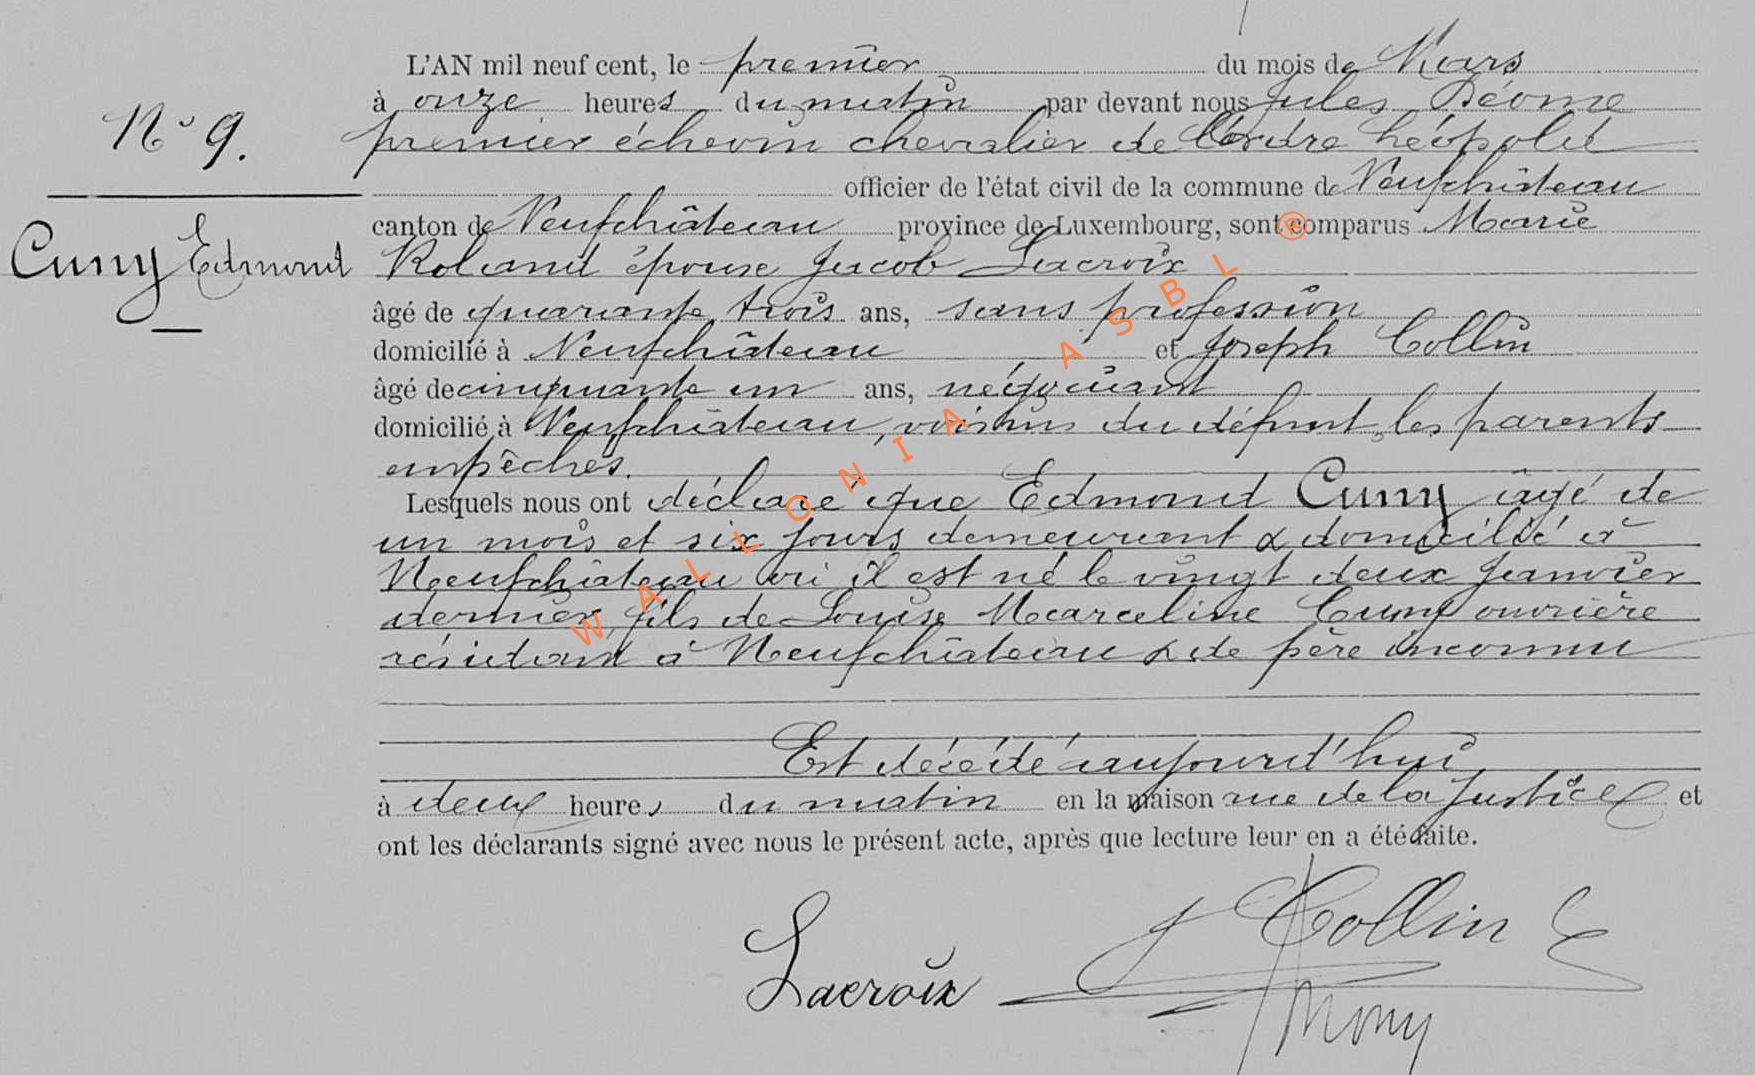 L'AN mil neuf cent, le premier du mois de Mars
à onze heures du matin par devant nous Jules
N° 9. premier échevin chevalier de l'ordre Léopold
officier de l'état civil de la commune de Neufchâteau
canton de Neufchâteau province de Luxembourg, sont comparus Marie
Cuny Edmond Roland épouse Jacob Lacroix
âgé de quarante trois ans, sans profession
domicilié à Neufchâteau et Joseph Collin
âgé de cinquante un ans, négociant
domicilié à Neufchâteau, voisins du défunt, les parents
empêchés.
Lesquels nous ont déclaré que Edmond Cuny âgé de
un mois et six jours demeurant & domicilié à
Neufchâteau où il est né le vingt deux janvier
dernier, fils de Louise Marceline Cuny ouvrière
résidant à Neufchâteau & de père inconnu
Est décédé aujourd'hui
à deux heures du matin en la maison rue de la Justice et
ont les déclarants signé avec nous le présent acte, après que lecture leur en a été faite.
Lacroix J Collin
WALLONIA ASBL ®